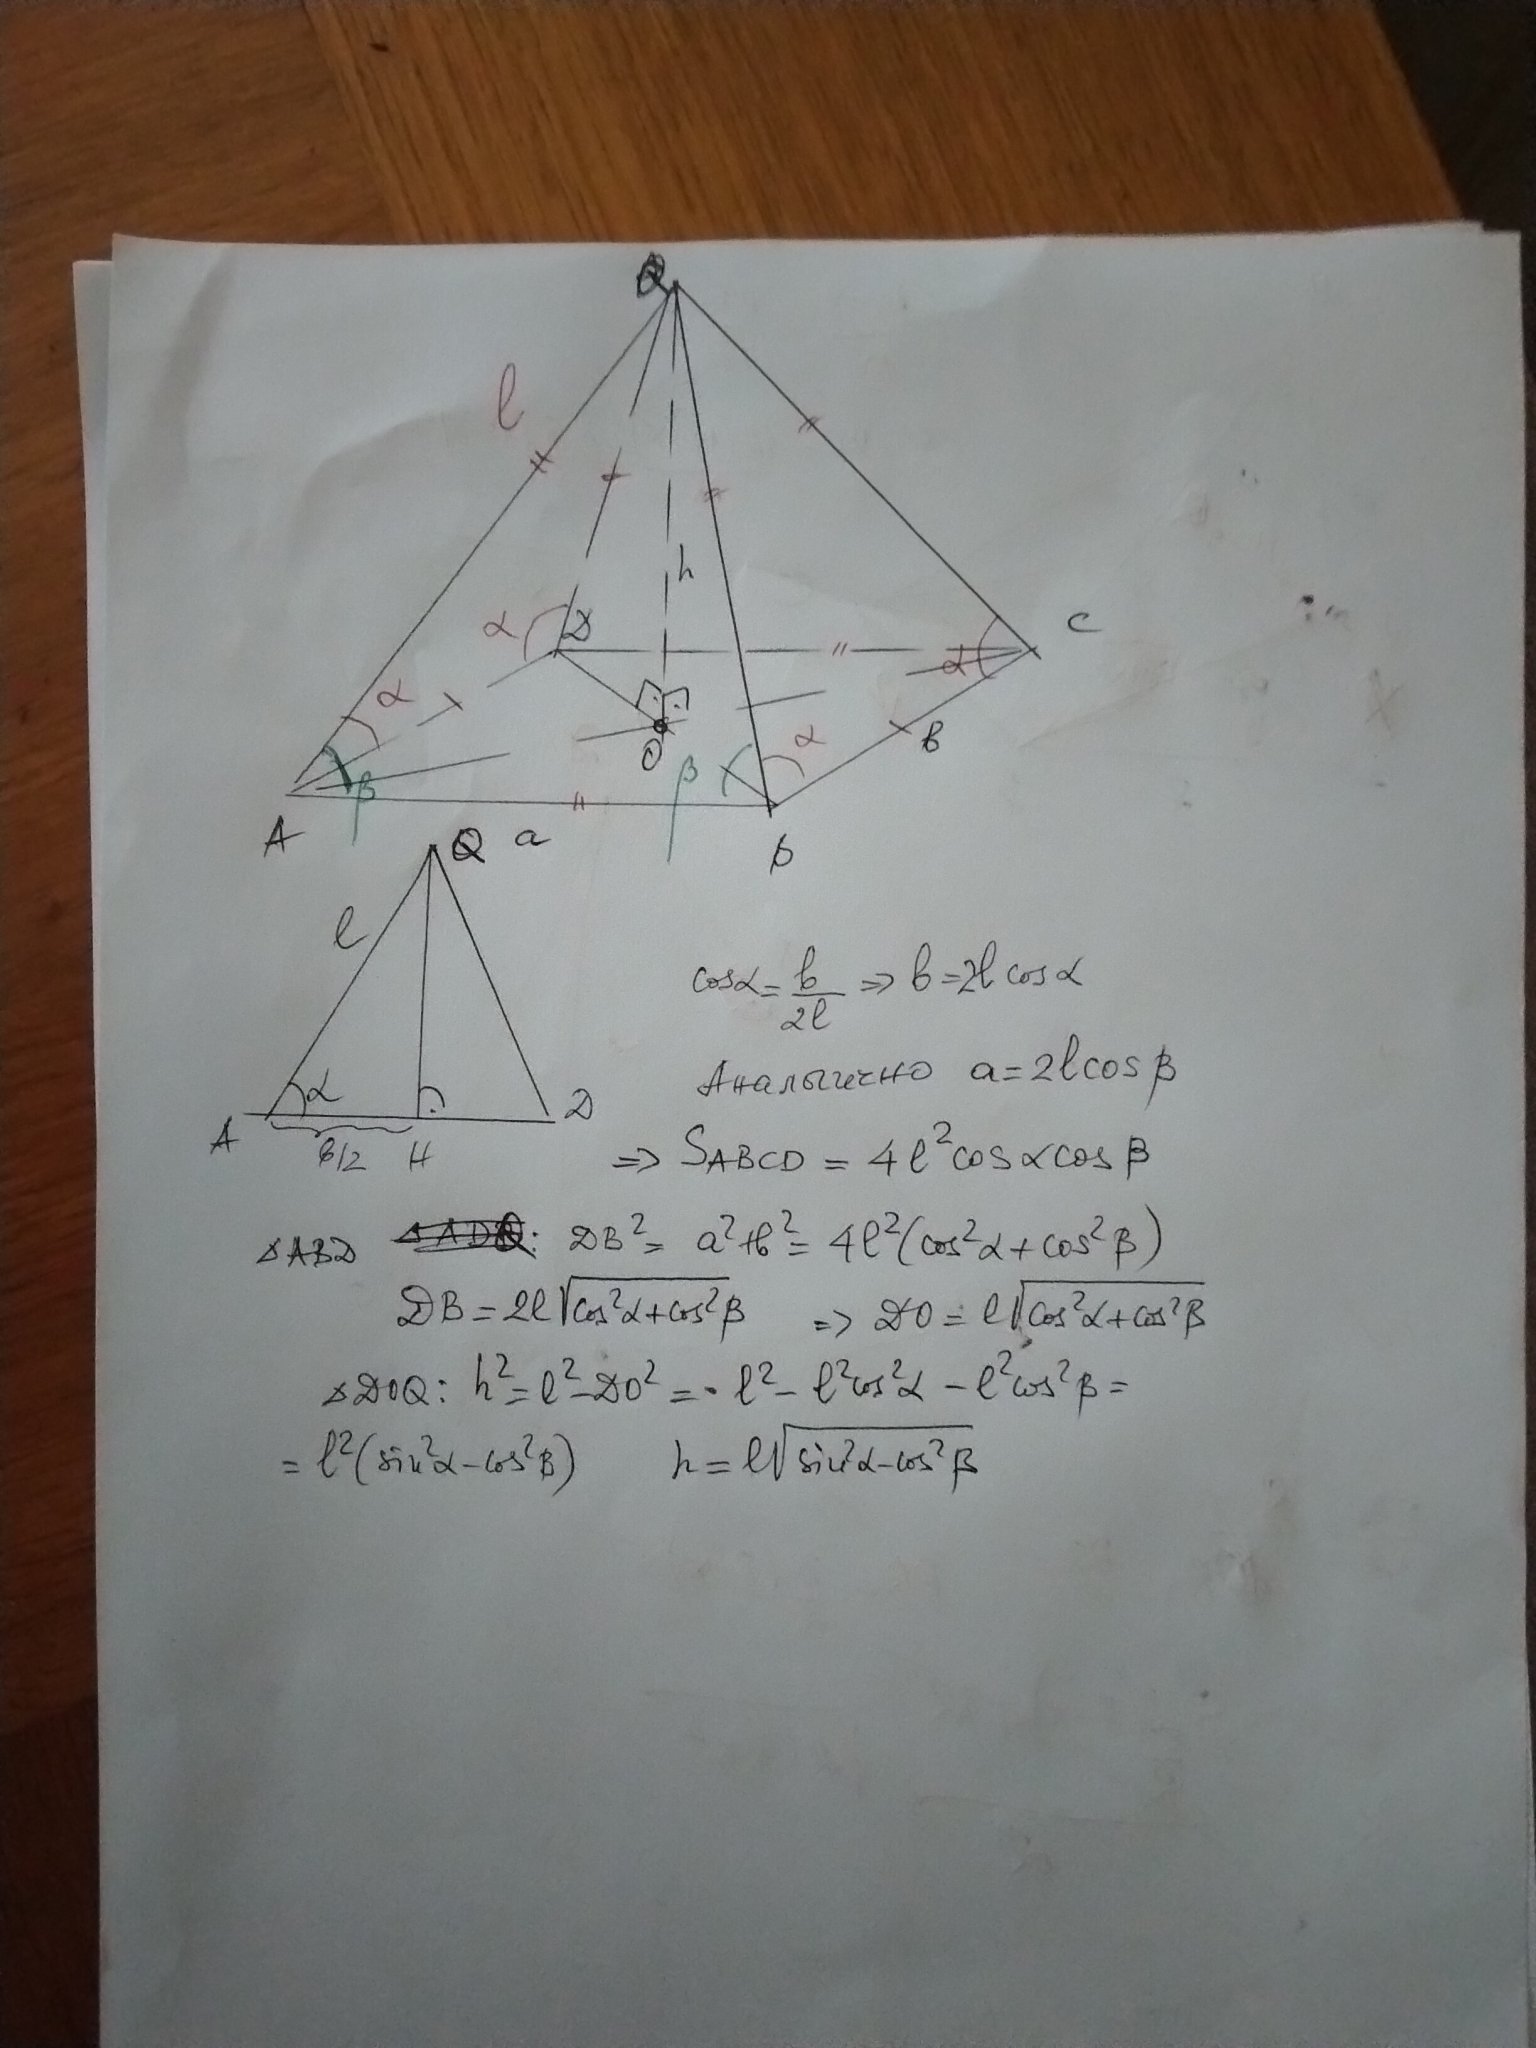 Q
l
h
α
D
C
α
α
O
β
α
b
β
A
a
B
Q
l
α
A
b/2
H
D
cosα = b/2l => b=2l cosα
Аналогично a=2lcosβ
=> S_ABCD = 4l²cosαcosβ
△ABD △ADQ: DB² = a²+b² = 4l²(cos²α+cos²β)
DB = 2l√(cos²α+cos²β) => DO = l√(cos²α+cos²β)
△DOQ: h² = l²-DO² = l² - l²cos²α - l²cos²β =
= l²(sin²α-cos²β) h = l√(sin²α-cos²β)